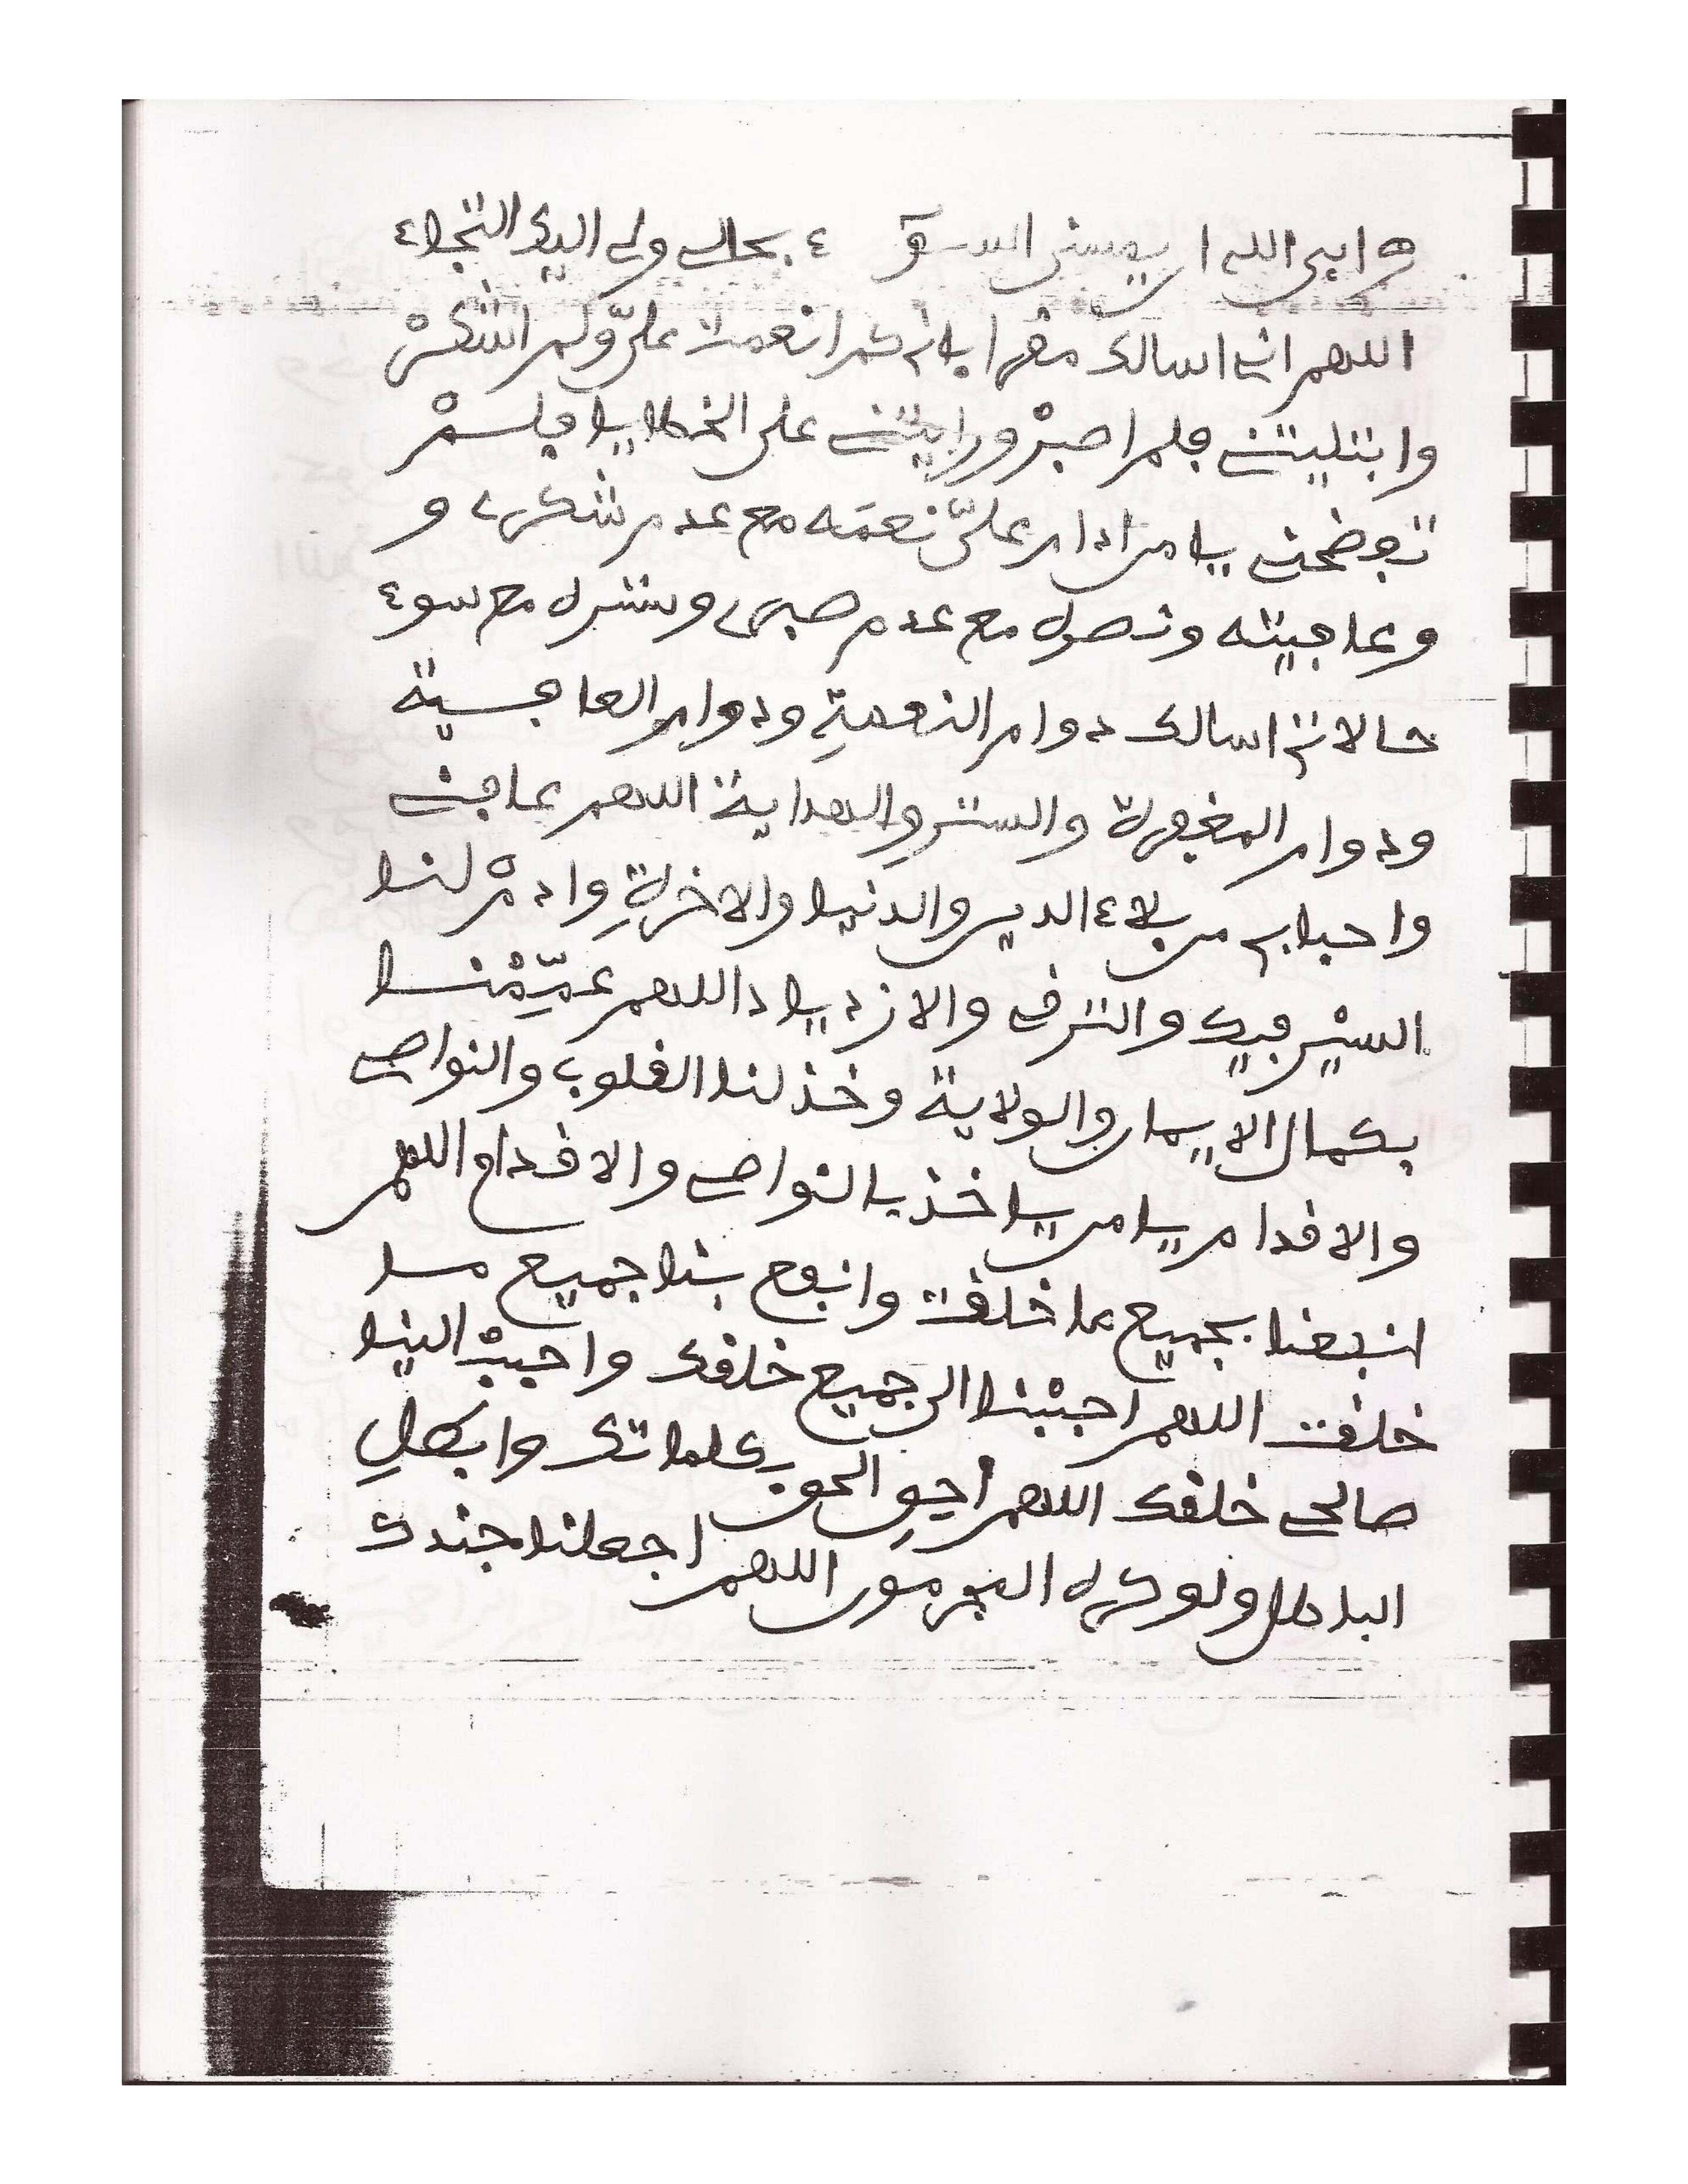 ابى الله ان يمسنى السوء بحالى ولى اليك التجاء
اللهم انى اسالك مقرا بانى كم انعمت علىّ ولم اشكرْ
وابتليتنى فلم اصبرْ ورايتنى على الخطايا فلمْ
تفضحنى يا من ادام علىّ نعمَه مع عدم شكرى و
وعافيته ونصره مع عدم صبرى وستره مع سوء
حالاتى اسالك دوام النعمةِ ودوام العافية
ودوام المغفرة والستر والهداية اللهم عافنى
واحبابى من بلاء الدين والدنيا والاخرةِ وادمْ لنا
السيْر فيك والترقى والازدياد اللهم عمِّمْنا
بكمال الايمان والولاية وخذ لنا القلوب والنواصى
والاقدام يا من ياخذ بالنواصى والاقدام اللهم
انفعنا بجميع ما خلقت وانفع بنا جميع ما
خلقت اللهم احببْنا الى جميع خلقك واحببْ الينا
صالحى خلقك اللهم أحِقِ الحق بكلماتك وابطلِ
الباطل ولو كره المجرمون اللهم اجعلنا جندك